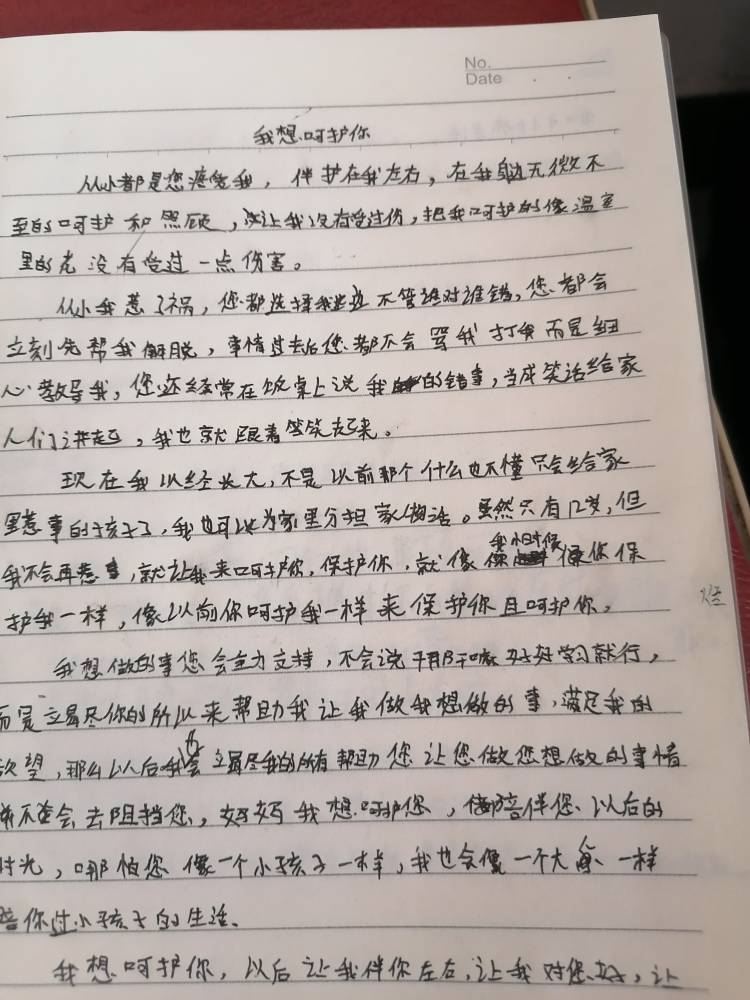 No.
Date
我想呵护你
从小都是您疼爱我，伴护在我左右，在我身边无微不
至的呵护和照顾，让我没有受过伤，把我呵护的像温室
里的花没有受过一点伤害。
从小我惹了祸，您都选择我这边不管谁对谁错，您都会
立刻先帮我解脱，事情过去后您都不会骂我打我而是细
心教导我，您还经常在饭桌上说我的错事，当成笑话给家
人们讲起，我也就跟着笑笑起来。
现在我以经长大，不是以前那个什么也不懂只会给家
里惹事的孩子了，我也可以为家里分担家务活。虽然只有12岁，但
我不会再惹事，就让我来呵护你，保护你，就像我小时候你保
护我一样，像以前你呵护我一样来保护你且呵护你。
我想做的事您会全力支持，不会说干那干嘛好好学习就行，
而是竭尽你的所以来帮助我让我做我想做的事，满足我的
欲望，那么以后我会竭尽我的所有帮助您让您做您想做的事情
并不会去阻挡您，妈妈我想呵护您，陪伴您以后的
时光，哪怕您像一个小孩子一样，我也会像一个大一样
陪你过小孩子的生活、
我想呵护你，以后让我伴你左右，让我对您好，让